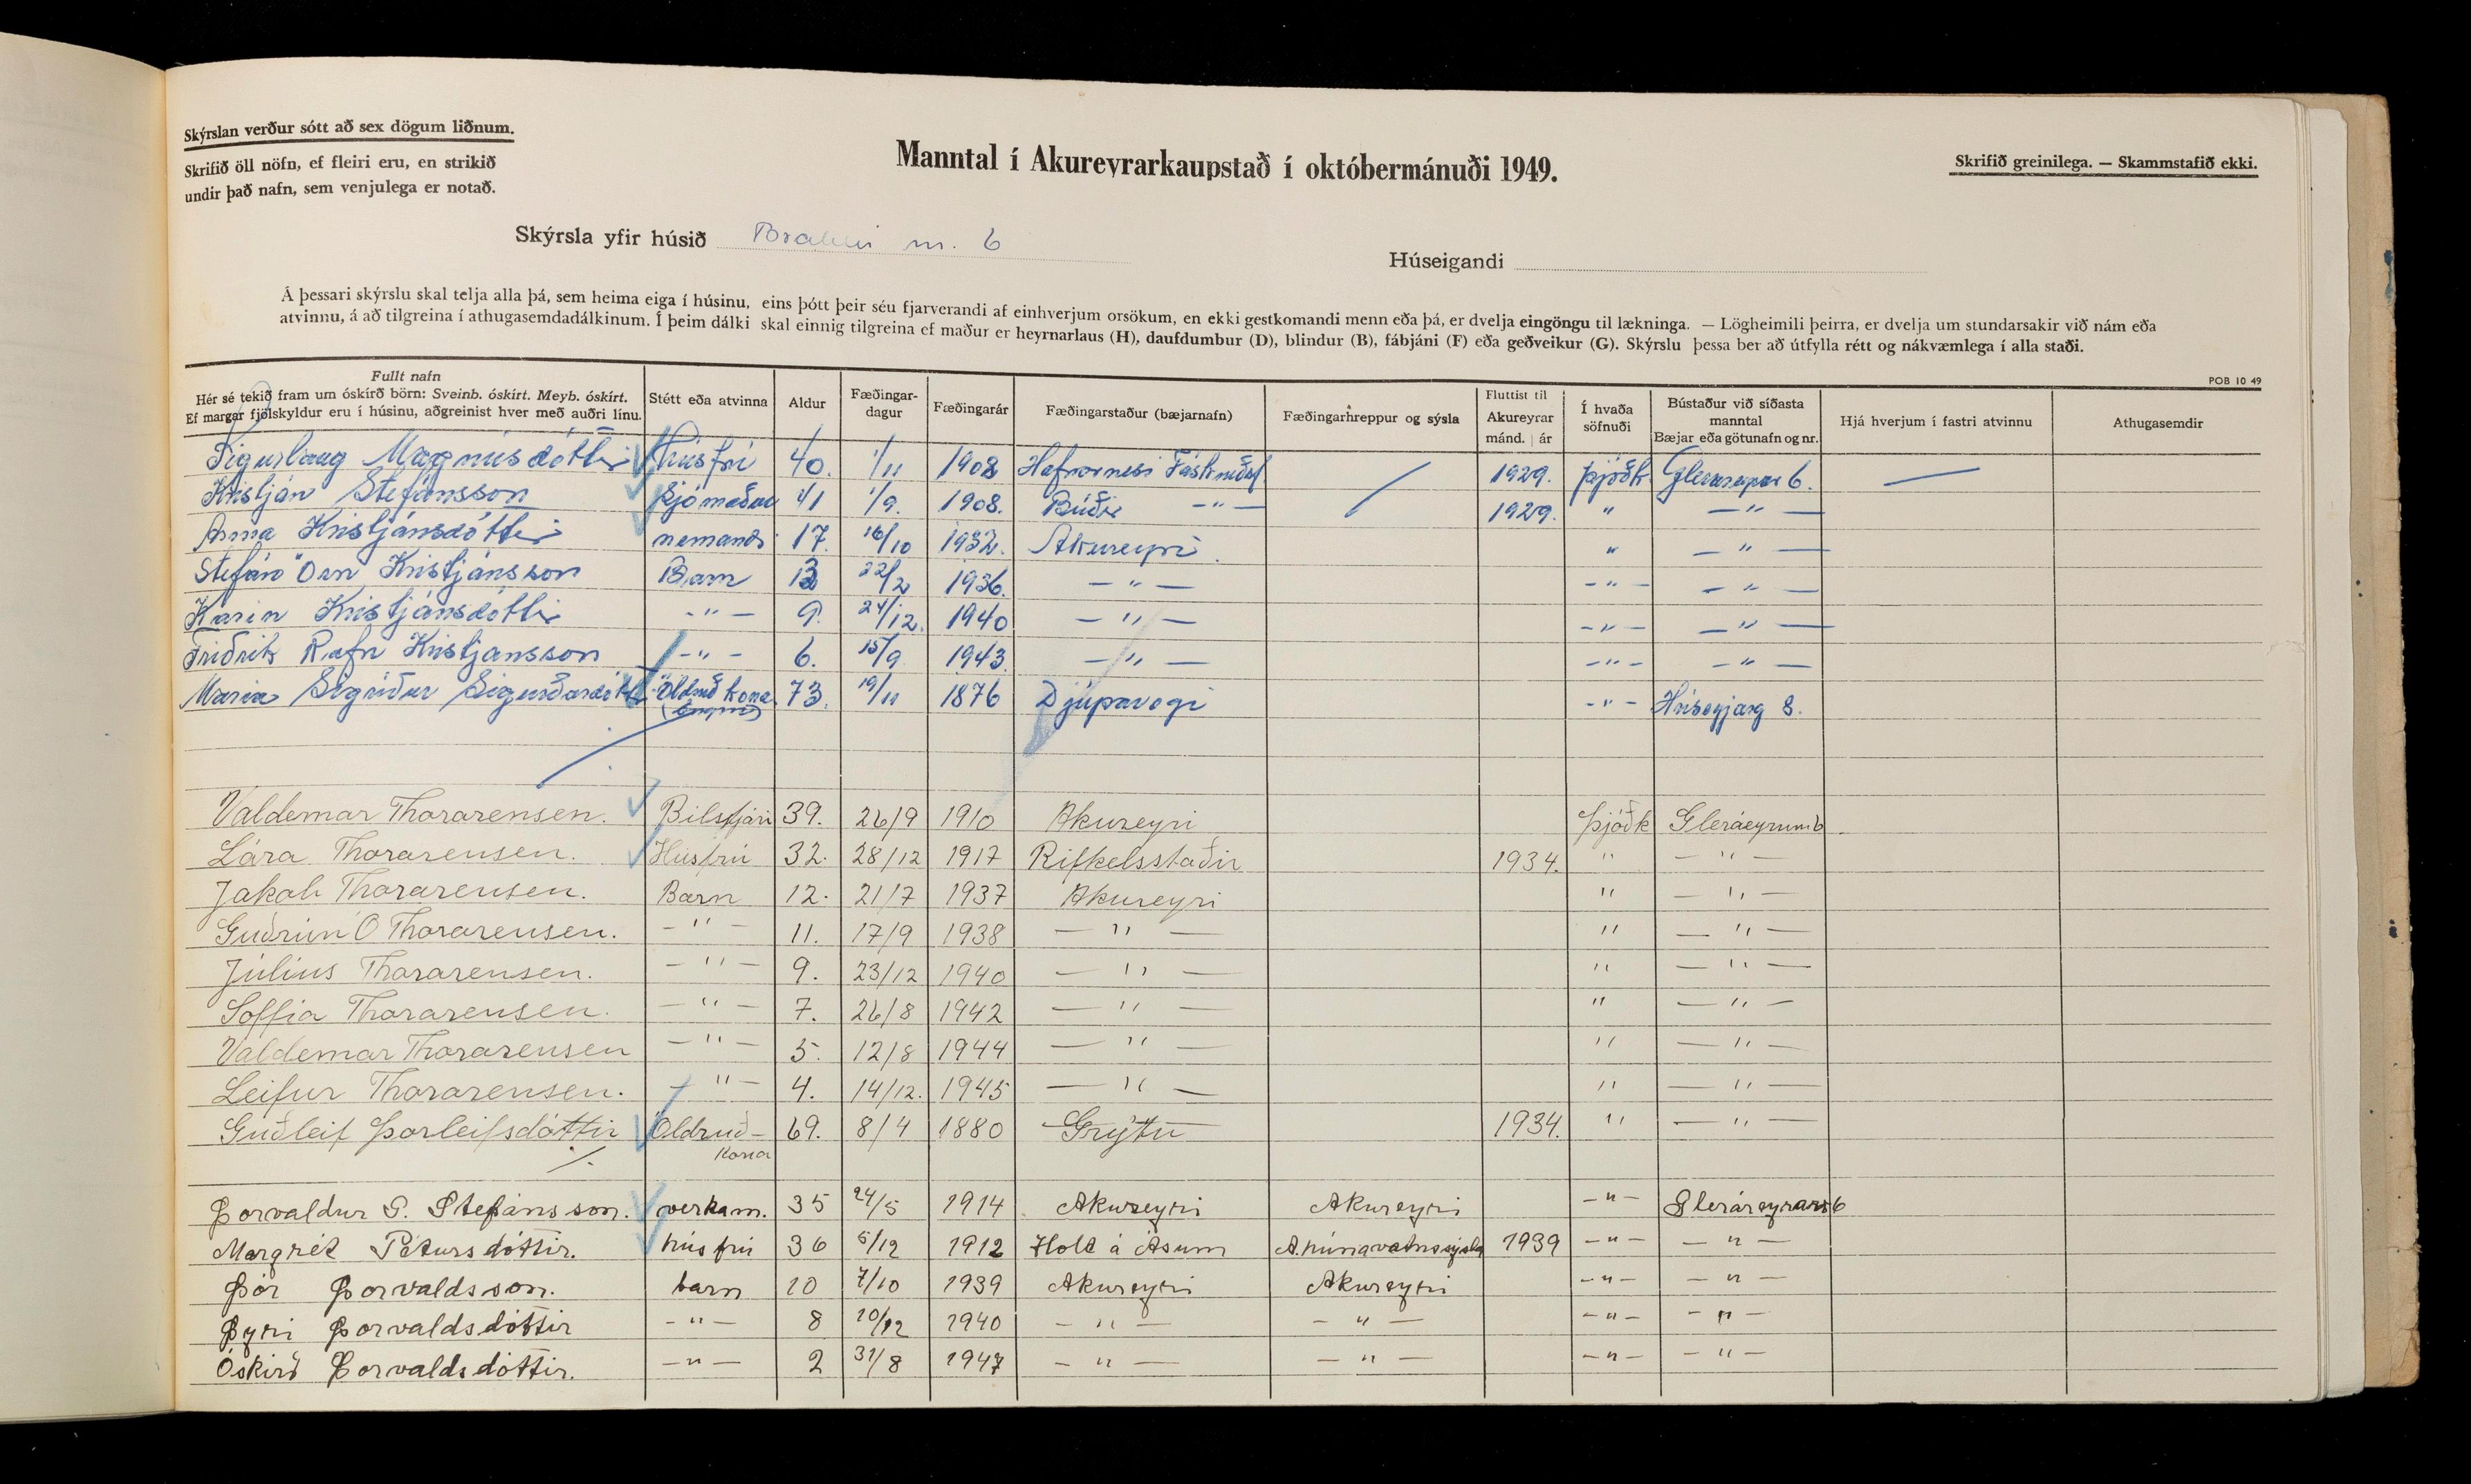 Skýrslan verður sótt að sex dögum liðnum.
Skrifið öll nöfn, ef fleiri eru, en strikið
undir það nafn, sem venjulega er notað.
Manntal í Akureyrarkaupstað í októbermánuði 1949.
Skrifið greinilega. — Skammstafið ekki.
Skýrsla yfir húsið nr. 6
Húseigandi
Á þessari skýrslu skal telja alla þá, sem heima eiga í húsinu, eins þótt þeir séu fjarverandi af einhverjum orsökum, en ekki gestkomandi menn eða þá, er dvelja eingöngu til lækninga. — Lögheimili þeirra, er dvelja um stundarsakir við nám eða
atvinnu, á að tilgreina í athugasemdadálkinum. Í þeim dálki skal einnig tilgreina ef maður er heyrnarlaus (H), daufdumbur (D), blindur (B), fábjáni (F) eða geðveikur (G). Skýrslu þessa ber að útfylla rétt og nákvæmlega í alla staði.
POB 10 49
Fullt nafn
Hér sé tekið fram um óskírð börn: Sveinb. óskírt. Meyb. óskírt.
Ef margar fjölskyldur eru í húsinu, aðgreinist hver með auðri línu.
Stétt eða atvinna
Aldur
Fæðingar-
dagur
Fæðingarár
Fæðingarstaður (bæjarnafn)
Fæðingarhreppur og sýsla
Fluttist til
Akureyrar
mánd. | ár
Í hvaða
söfnuði
Bústaður við síðasta
manntal
Bæjar eða götunafn og nr.
Hjá hverjum í fastri atvinnu
Athugasemdir
Sigurlaug Magnúsdóttir húsfrú 40. 1/11 1908 Hafnarnesi 1929. Þjóðk. 6. —
Kristján Stefánsson Sjómaður 41 1/9. 1908. Búðir — " — 1929. " — " —
Anna Kristjánsdóttir nemandi 17. 16/10 1932. Akureyri. " — " —
Stefán Örn Kristjánsson Barn 13 22/2 1936. — " — - " - — " —
Karin Kristjánsdóttir - " - 9. 24/12. 1940 — " — - " - — " —
Friðrik Rafn Kristjansson - " - 6. 15/9 1943. — " — - " - — " —
Maria Sigríður Sigurðardótt Öldruð kona 73. 19/11 1876 Djúpavogi - " - 8.
Valdemar Thorarensen. Bilstjóri 39. 26/9 1910 Akureyri Þjóðk Gleráeyrum 6
Lára Thorarensen. Húsfrú 32. 28/12 1917 Rifkelsstaðir 1934. " — " —
Jakob Thorarensen. Barn 12. 21/7 1937 Akureyri " — " —
Guðrún Ó Thorarensen. — " — 11. 17/9 1938 — " — " — " —
Júlíus Thorarensen. — " — 9. 23/12 1940 — " — " — " —
Soffia Thorarensen. — " — 7. 26/8 1942 — " — " — " —
Valdemar Thorarensen — " — 5. 12/8 1944 — " — " — " —
Leifur Thorarensen. — " — 4. 14/12. 1945 — " — " — " —
Guðleif Þorleifsdóttir Öldruð- 69. 8/4 1880 Grýtu 1934. " — " —
kona
Þorvaldur G. Stefánsson. verkam. 35 24/5 1914 Akureyri Akureyri - " - Gleráreyrar 6
Margrét Pétursdóttir. húsfrú 36 5/12 1912 Holt á Ásum A.húnavatnssýsla 1939 - " - — " —
Þór Þorvaldsson. barn 10 7/10 1939 Akureyri Akureyri - " - — " —
Þyri Þorvaldsdóttir — " — 8 20/12 1940 — " — — " — - " - — " —
Óskirð Þorvaldsdóttir. — " — 2 31/8 1947 — " — — " — - " - — " —